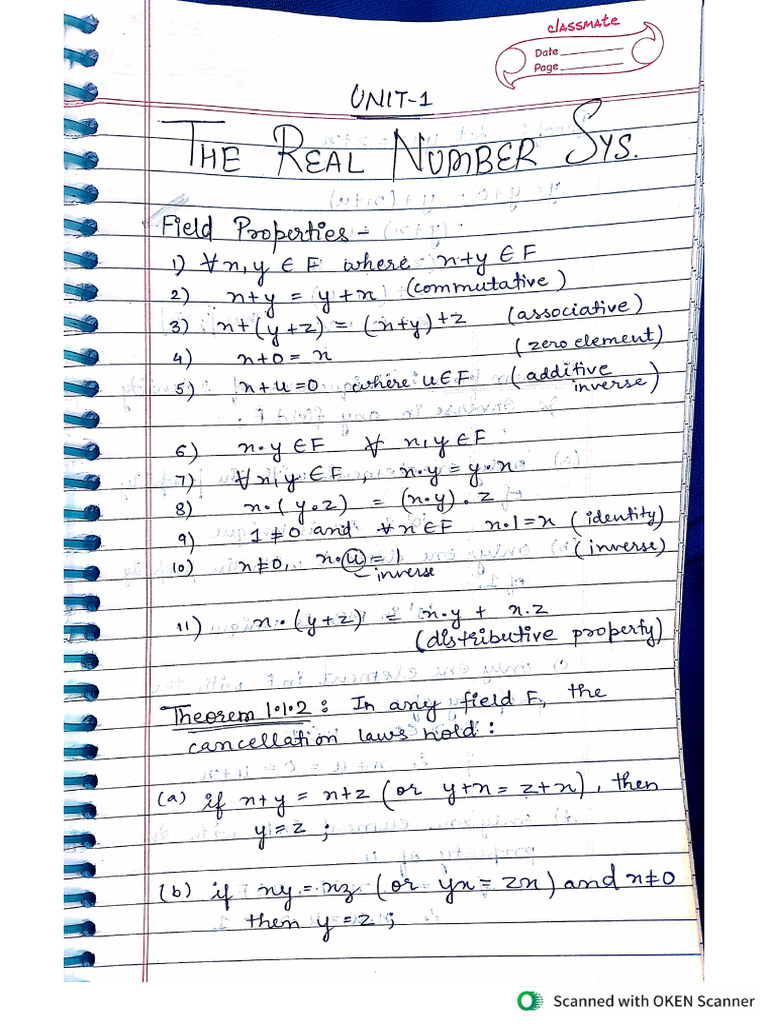 classmate
Date
Page
UNIT-1
THE REAL NUMBER SYS.
Field Properties -
1) ∀ x, y ∈ F where x+y ∈ F
2) x+y = y+x (commutative)
3) x+(y+z) = (x+y)+z (associative)
4) x+0 = x (zero element)
5) x+u=0 where u∈F (additive
inverse)
6) x•y ∈ F ∀ x, y ∈ F
7) ∀ x, y ∈ F, x•y = y•x
8) x•(y•z) = (x•y)•z
9) 1≠0 and ∀ x∈F x•1=x (identity)
10) x≠0, x•u = 1 (inverse)
inverse
11) x•(y+z) = x•y + x.z
(distributive property)
Theorem 1.1.2: In any field F, the
cancellation laws hold:
(a) if x+y = x+z (or y+x = z+x), then
y=z;
(b) if xy = xz (or yx = zx) and x≠0
then y=z;
Scanned with OKEN Scanner